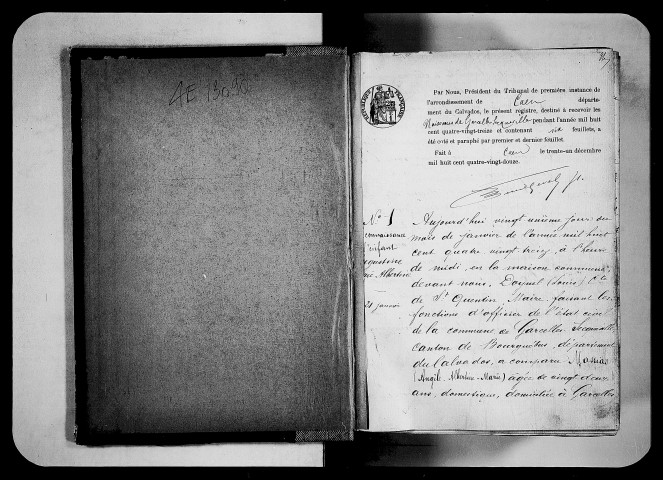 4E 13090
Par Nous, Président du Tribunal de première instance de
l'arrondissement de Caen départe-
ment du Calvados, le présent registre, destiné à recevoir les
Naissances de pendant l'année mil huit
cent quatre-vingt-treize et contenant six feuillets, a
été coté et paraphé par premier et dernier feuillet.
Fait à Caen le trente-un décembre
mil huit cent quatre-vingt-douze.
N° 1
Reconnaissance
d'enfant
Augustine
Albertine
21 janvier
Aujourd'hui vingt unième jour du
mois de janvier de l'année mil huit
cent quatre vingt treize, à l'heure
de midi, en la maison commune,
devant nous, Doynel (Louis) Cte
de St Quentin, Maire, faisant les
fonctions d'officier de l'état civil
de la commune de Garcelles Secqueville
canton de Bourguébus, département
du Calvados, a comparu
(Angèle-Albertine-Marie) âgée de vingt deux
ans, domestique, domiciliée à Garcelles